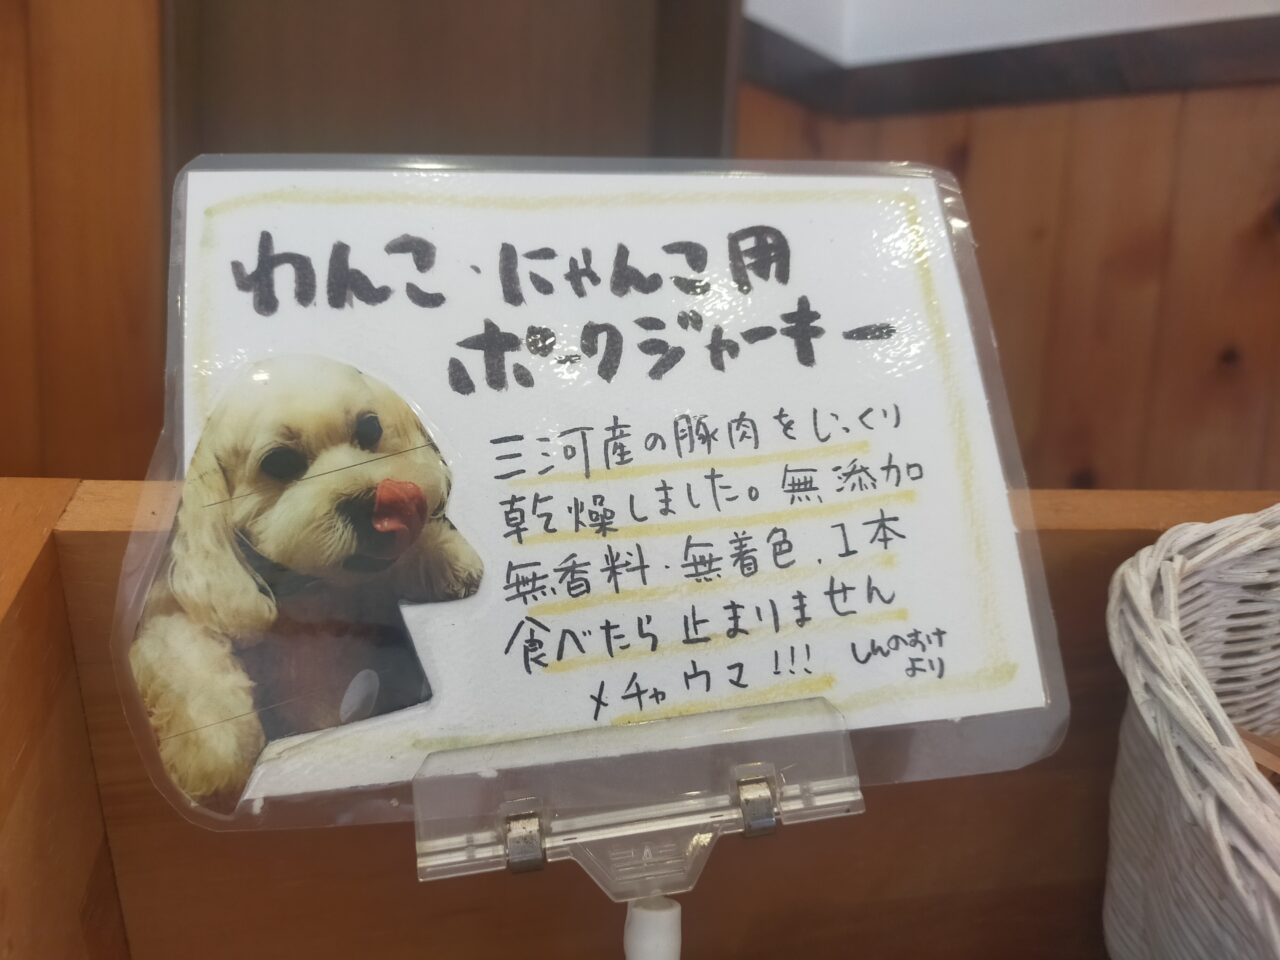 わんこ・にゃんこ用
ポークジャーキー
三河産の豚肉をじっくり
乾燥しました。無添加
無香料・無着色.1本
食べたら止まりません
メチャウマ!!!
しんのすけ
より